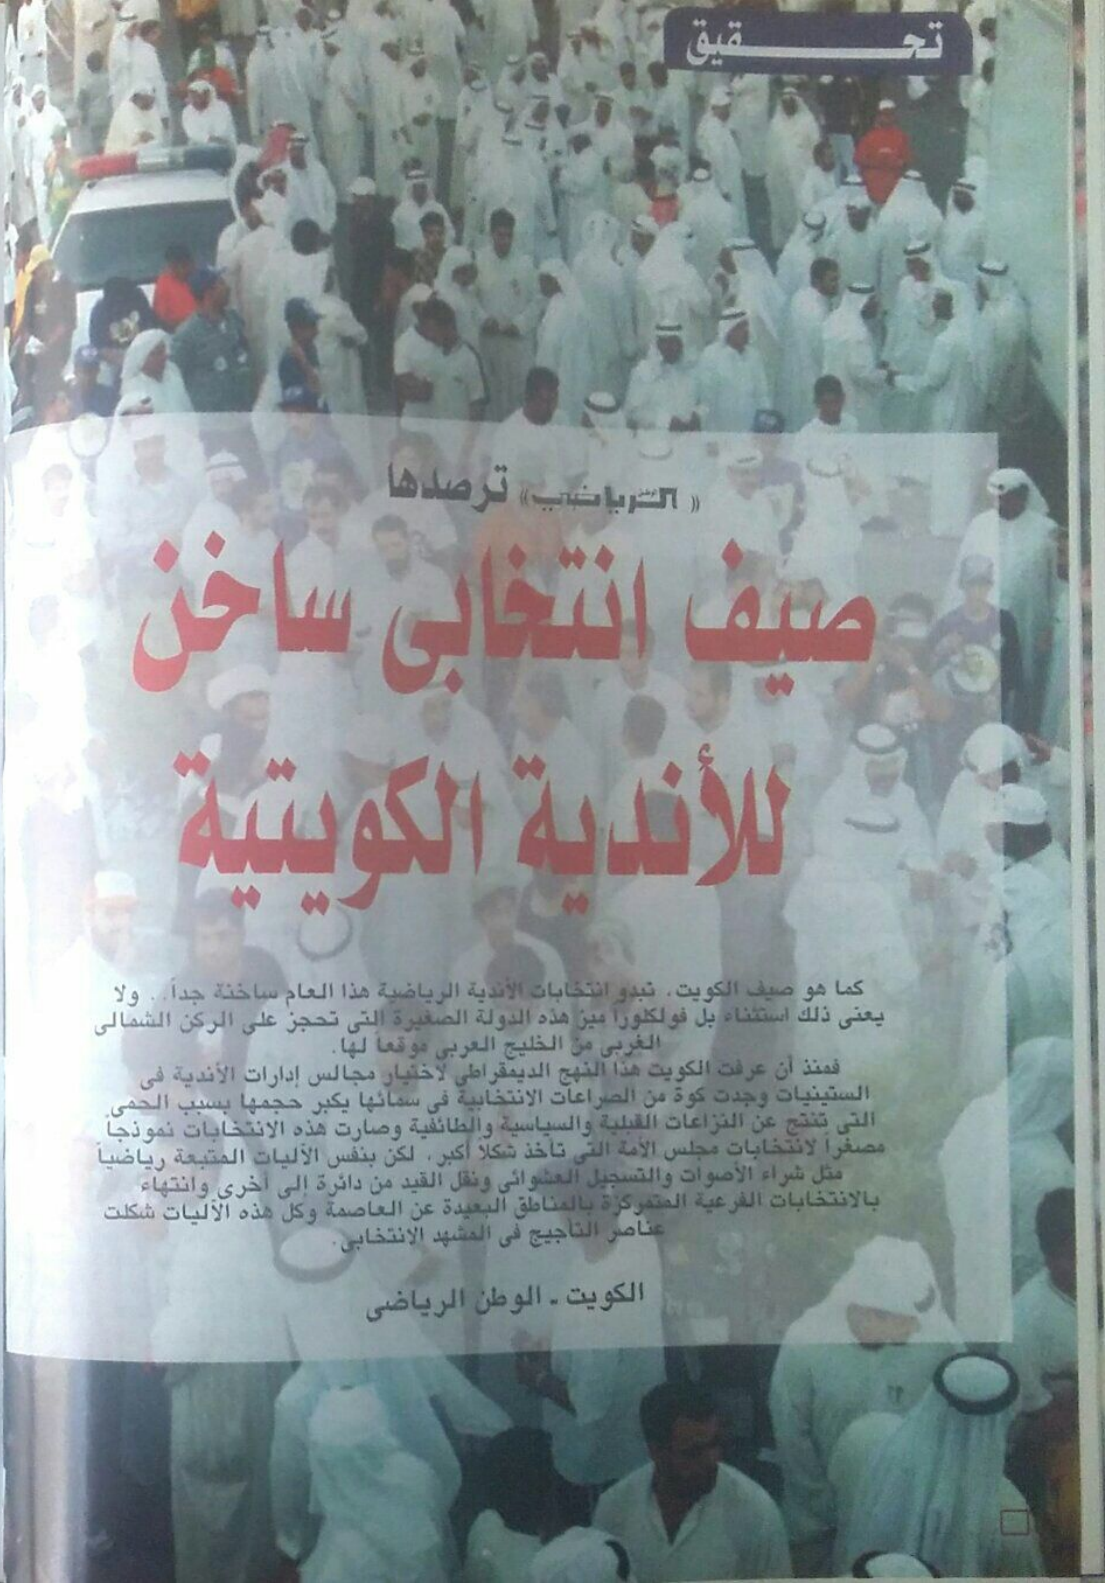 تحقيق
« الوطن الرياضي» ترصدها
صيف انتخابى ساخن
للأندية الكويتية
كما هو صيف الكويت، تبدو انتخابات الأندية الرياضية هذا العام ساخنة جداً.. ولا
يعنى ذلك استثناء بل فولكلورا ميز هذه الدولة الصغيرة التى تحجز على الركن الشمالى
الغربى من الخليج العربى موقعاً لها.
فمنذ أن عرفت الكويت هذا النهج الديمقراطى لاختيار مجالس إدارات الأندية فى
الستينيات وجدت كوة من الصراعات الانتخابية فى سمائها يكبر حجمها بسبب الحمى
التى تنتج عن النزاعات القبلية والسياسية والطائفية وصارت هذه الانتخابات نموذجاً
مصغراً لانتخابات مجلس الأمة التى تأخذ شكلا أكبر، لكن بنفس الآليات المتبعة رياضياً
مثل شراء الأصوات والتسجيل العشوائى ونقل القيد من دائرة إلى أخرى وانتهاء
بالانتخابات الفرعية المتمركزة بالمناطق البعيدة عن العاصمة وكل هذه الآليات شكلت
عناصر التأجيج فى المشهد الانتخابى.
الكويت ـ الوطن الرياضى